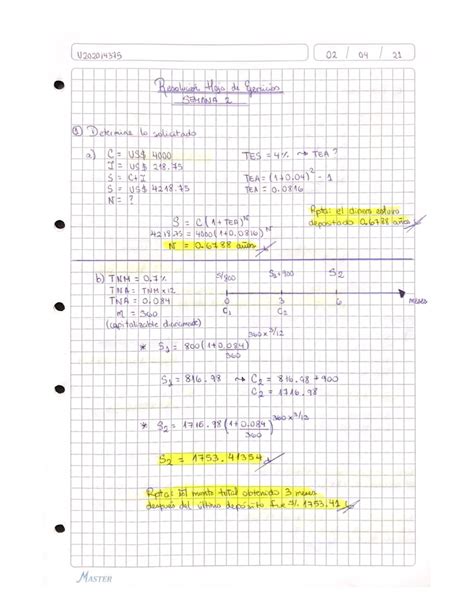 U202014375
02 / 04 / 21
Resolución Hoja de Ejercicios
SEMANA 2
① Determine lo solicitado
a) C = US$ 4000
I = US$ 218.75
S = C+I
S = US$ 4218.75
N = ?
TES = 4% → TEA ?
TEA = (1+0.04)² - 1
TEA = 0.0816
S = C(1+TEA)^N
4218.75 = 4000(1+0.0816)^N
N = 0.6788 años
Rpta: el dinero estuvo
depositado 0.6788 años
b) TNM = 0.7%
TNA = TNM×12
TNA = 0.084
m = 360
(capitalizable diariamente)
S/800 S₁+900 S₂
0 3 6 meses
C₁ C₂
* S₁ = 800(1+0.084/360)^360×3/12
S₁ = 816.98 → C₂ = 816.98 + 900
C₂ = 1716.98
* S₂ = 1716.98(1+0.084/360)^360×3/12
S₂ = 1753.41354
Rpta: El monto total obtenido 3 meses
después del último depósito fue S/. 1753.41
MASTER